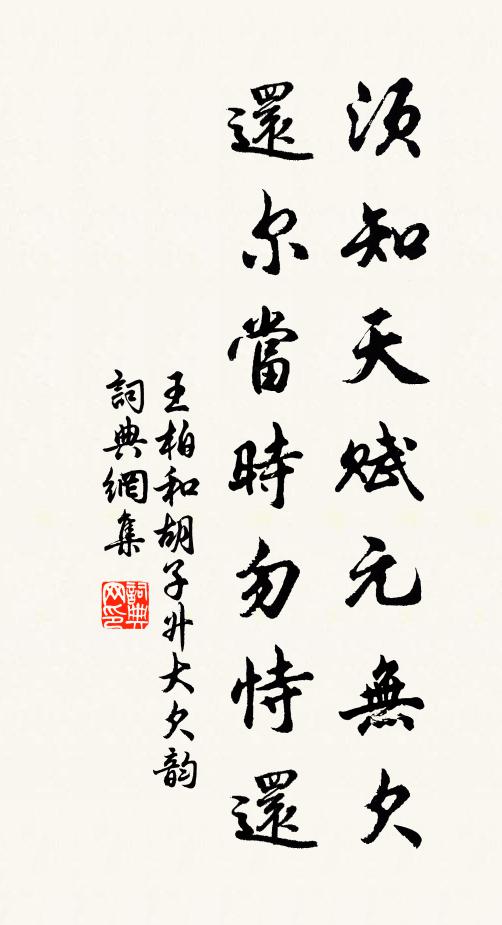 須知天賦元無欠
還尔當時勿恃還
王柏和胡子升大欠韵
詞典網集
詞典网印